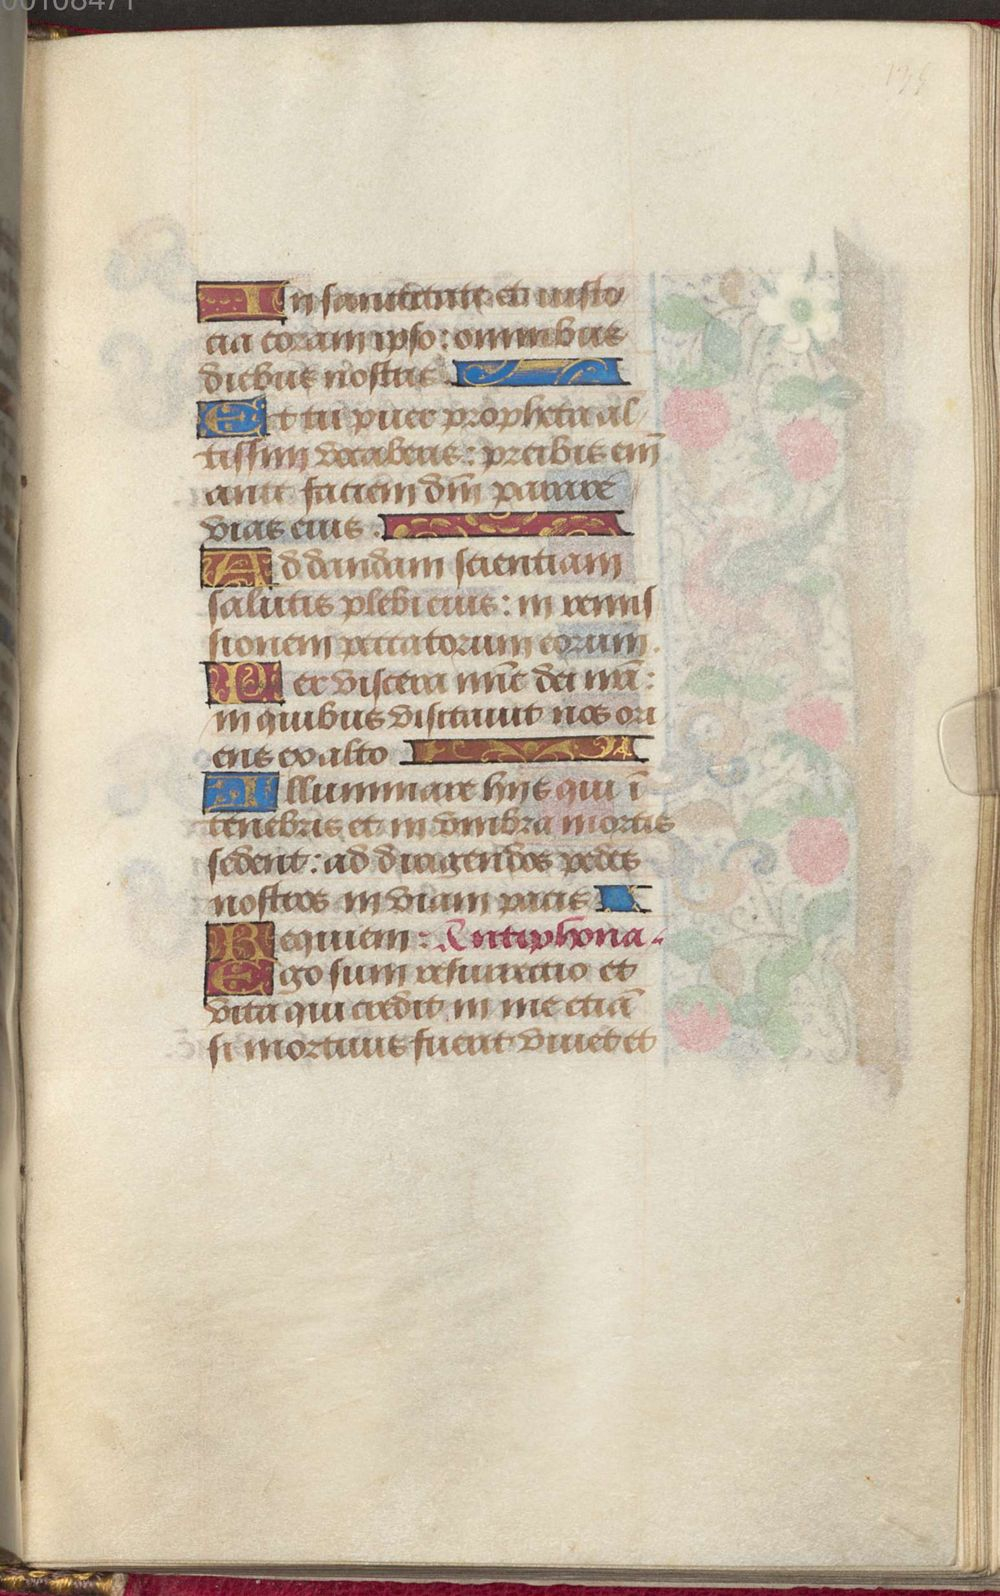 00108471
In sanctitate et iusti
cia coram ipso: omnibus
diebus nostris.
Et tu puer propheta al
tissimi vocaberis: preibis em̄
ante faciem dn̄i parare
vias eius.
Ad dandam scientiam
salutis plebi eius: in remis
sionem peccatorum eorum.
Per viscera mīe dei nr̄i:
in quibus visitauit nos ori
ens ex alto
Illuminare hijs qui ī
tenebris et in vmbra mortis
sedent: ad dirigendos pedes
nostros in viam pacis
Requiem: Antiphona.
Ego sum resurrectio et
vita qui credit in me etiā
si mortuus fuerit viuet et